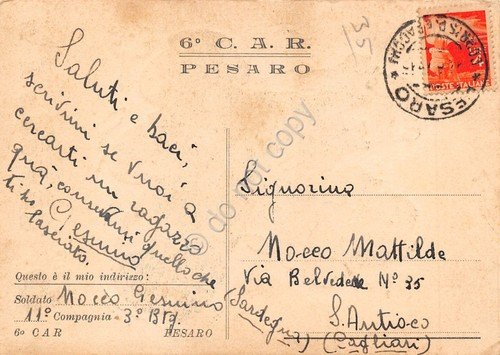 35
6° C. A. R.
PESARO
Saluti e baci,
scrivimi se vuoi a
cercarti un ragazzo
quà, conservati quello che
ti ho lasciato.
Gesuino
Questo è il mio indirizzo:
Soldato Mocco Gesuino
11° Compagnia 3° Btg.
6° CAR PESARO
Signorina
Mocco Mathilde
Via Belvedere N° 35
S. Antioco
(Cagliari)
(Sardegna)
PESARO
do not copy